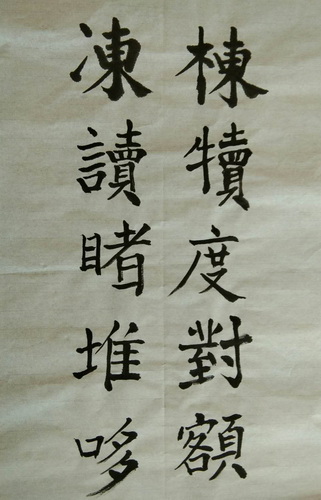 棟犢度對額
凍讀睹堆哆